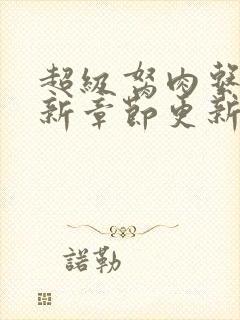 超級胬肉繫
新章節更新
諾勒